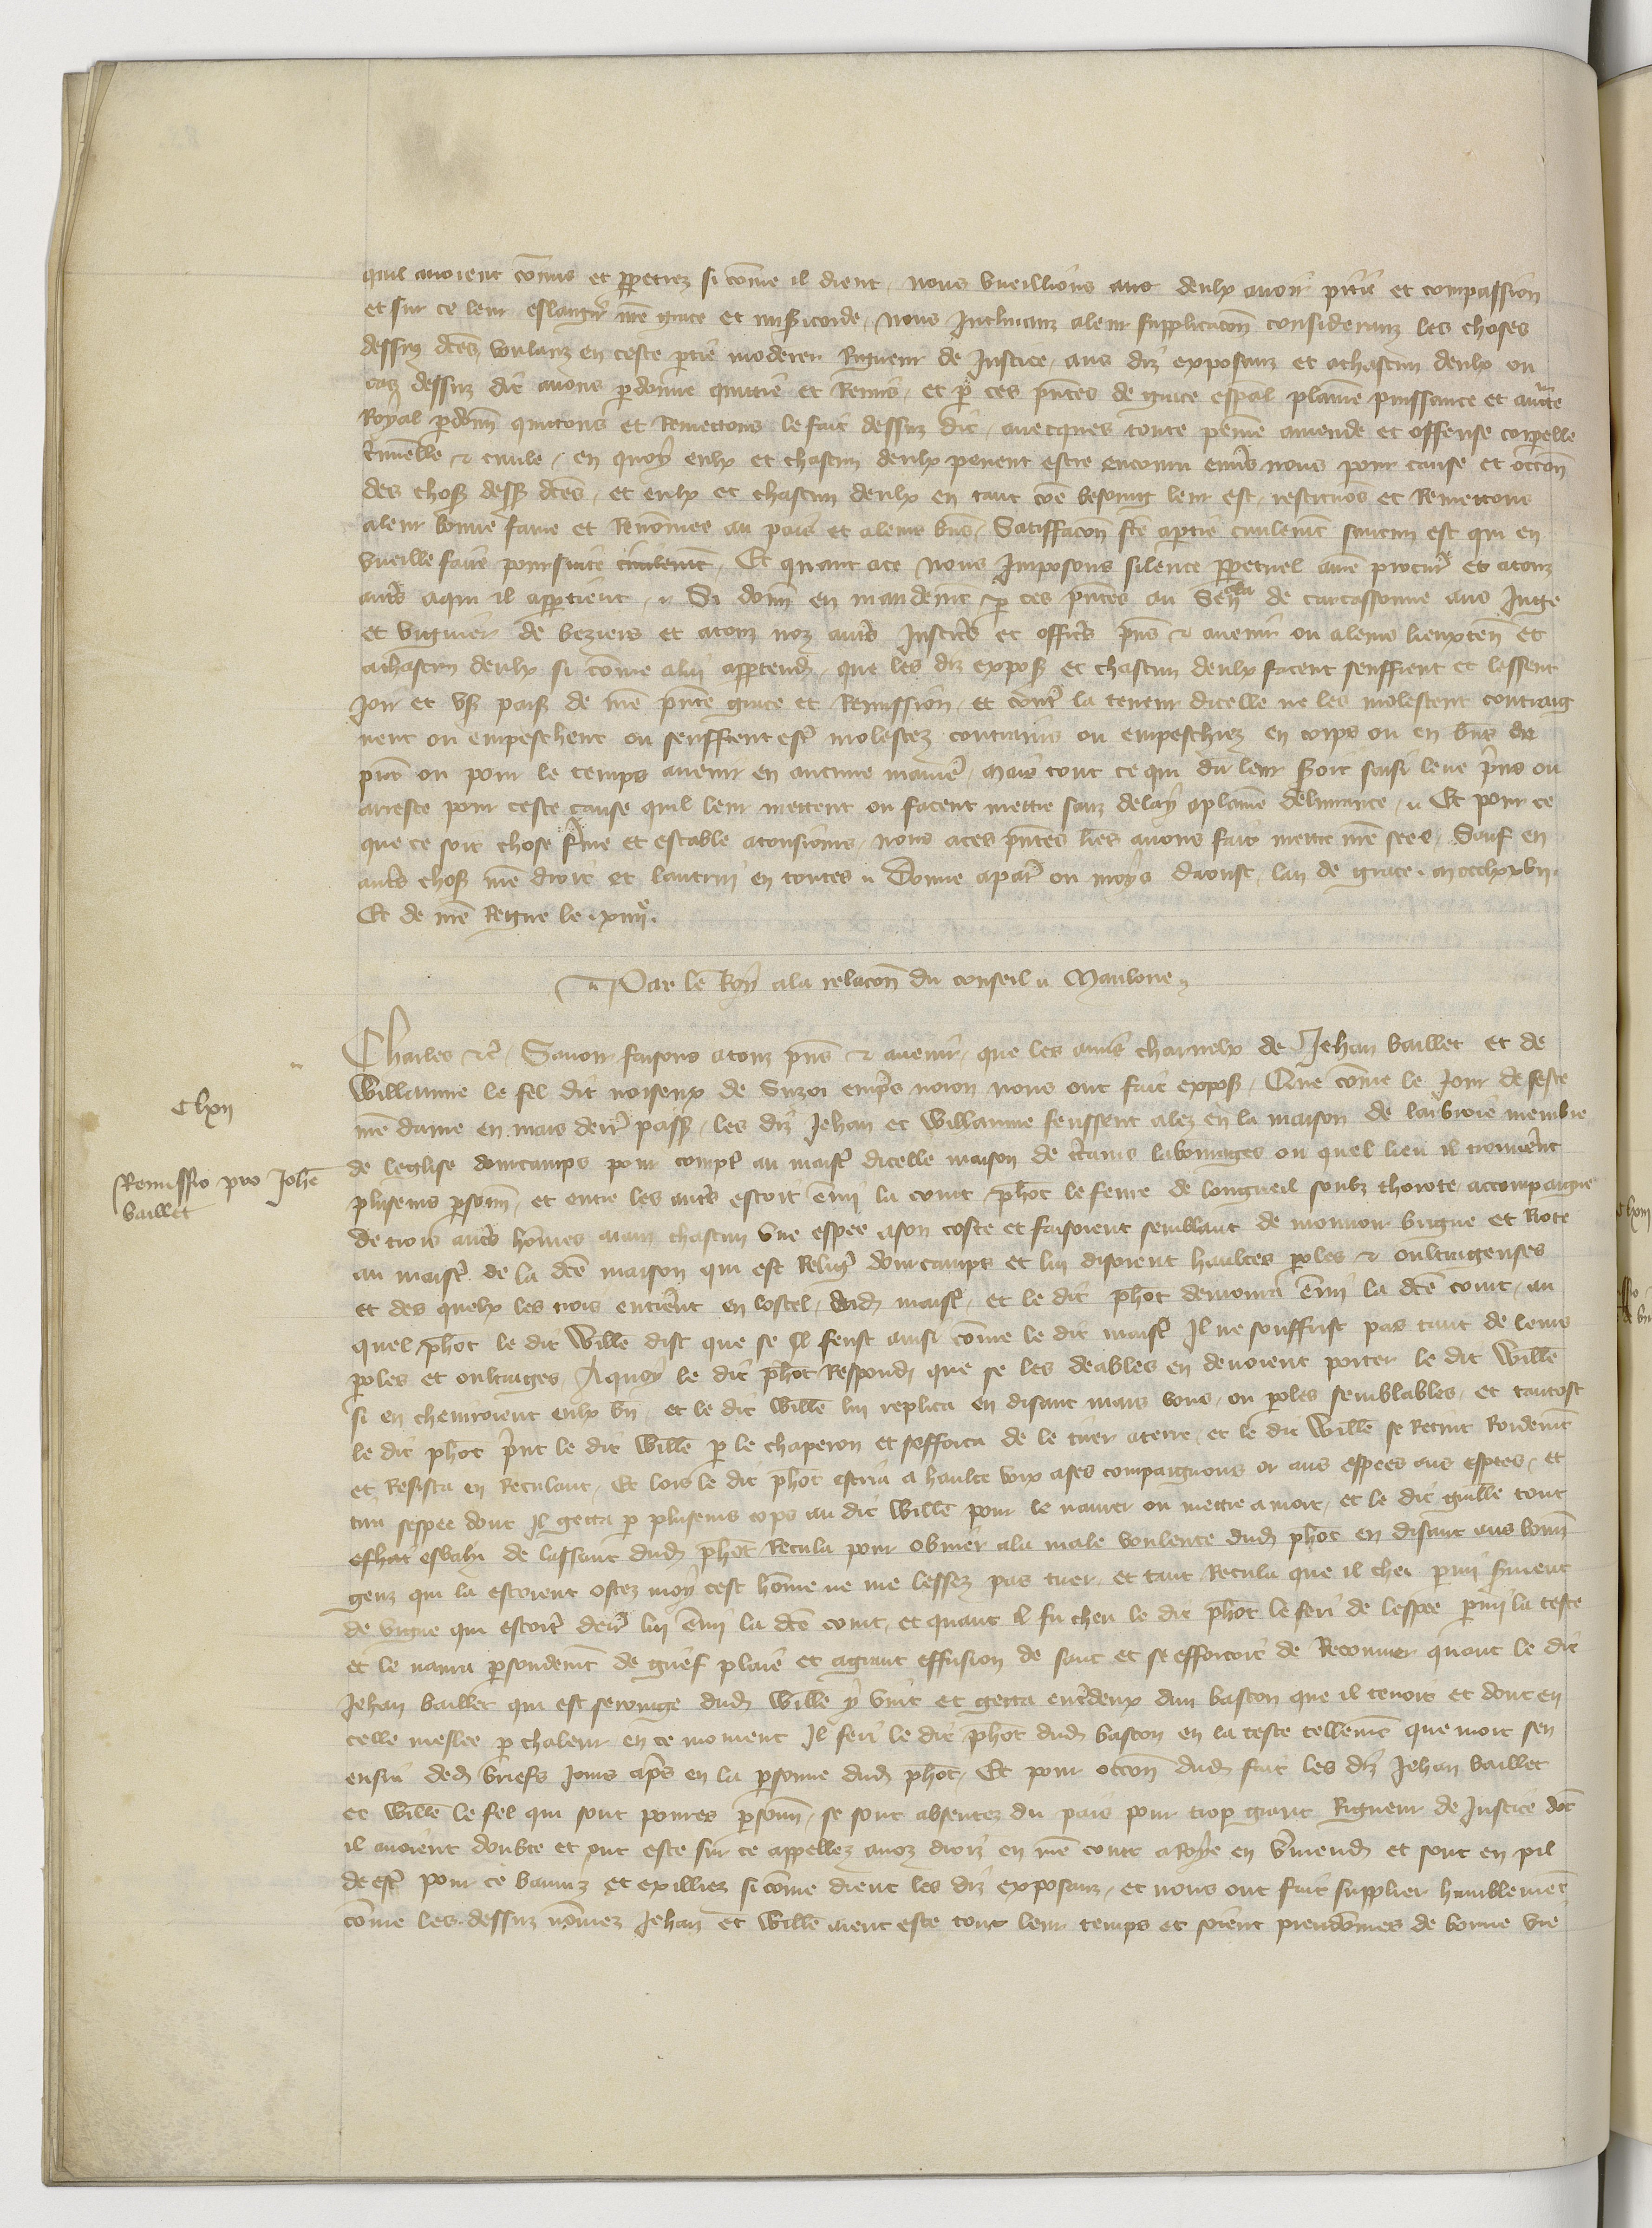 quil avoient comis et ppetrez si come il dient, nous vueillions avec deulx avoir pitie et compassion
et sur ce leur eslargir nre grace et misicorde, Nous Inclinanz aleur supplicacon consideranz les choses
dessuz dces voulanz en ceste ptie moderer Rigueur de Justice, aus diz exposanz et achascun deulx ou
cas dessuz dit avons pdonne quittie et Remis, et p ces pntes de grace espal plaine puissance et aucte
Royal pdonn quittons et Remettons le fait dessuz dit, avecques toute peine amende et offense corpelle
criminelle & civile, en quoy eulx et chascun deulx pevent estre encouru envs nous pour cause et occon
des chos dess dces, et eulx et chascun deulx en tant coe besoing leur est, restituons et Remettons
aleur bonne fame et Renomee au pais et aleurs bns, Satisffacon fte aptie civilemt saucun est qui en
vueille faire poursuite civilemt, Et quant ace Nous Imposons silence ppetuel anre procur et atouz
auts aqui il apptient, Si donn en mandemt p ces pntes au Senal de carcassonne aus Juge
et viguier de beziers et atouz noz auts Justics et offics pns & avenir ou aleurs lieuxten et
achascun deulx si come alui appartendra, que les diz expos et chascun deulx facent seuffrent et lessent
Joir et us paisib de nre pnte grace et Remission, et contr la teneur dicelle ne les molestent contraig
nent ou empeschent ou seuffrent estr molestez contrains ou empeschiez en corps ou en bns ou
pnt ou pour le temps avenir en aucune manier, Mais tout ce qui du leur soit saisi leve pris ou
arreste pour ceste cause quil leur mettent ou facent mettre sanz delay aplaine delivrance, Et pour ce
que ce soit chose ferme et estable atousiours, nous aces pntes lres avons fait mettre nre seel, Sauf en
auts chos nre droit et lautrui en toutes Donne apar ou moys daoust, lan de grace mccclxxvii
Et de nre Regne le xiiiie

Par le Roy ala relacon du conseil Maulone

Charles etc, Savoir faisons atouz pns & avenir, que les amis charnelx de Jehan baillet et de
Willaume le fel dit noiseux de Suzoi empres noion nous ont fait expos, Que come le Jour de feste
nre dame en mars derr pass, les diz Jehan et Willaume feussent alez en la maison de membre
de leglise dourcamps pour compt au maist dicelle maison de crtains labourages ou quel lieu il trouverent
plusieurs psonn, et entre les auts estoit emi la court phot le feure de longueil soubz thorote accompaigne
de trois auts homes aians chascun une espee ason coste et faisoient semblant de mouvoir brigue et Riote
au maistr de la dce maison qui est Religi dourcamps et lui disoient haultes poles & oultrageuses
et des quelx les trois entrerent en lostel dud maist, et le dit phot demoura emi la dce court, au
quel phot le dit Wille dist que se Il feust ainsi come le dit maist Il ne souffrist pas tant de leurs
poles et oultrages, Aquoy le dit phot Respondi que se les deables en devoient porter le dit Wille
si en cherroient eulx bn, et le dit Wille lui replica en disant mais vous, ou poles semblables, et tantost
le dit phot prist le dit Wille p le chaperon et sefforca de le tirer aterre, et le dit Wille se Retint Roidemt
et Resista en Reculant, Et lors le dit phot escria a haulte voix ases compaignons or aus espees aus espees, et
tira sespee dont Il getta p plusieurs cops au dit Wille pour le navrer ou mettre a mort, et le dit guille tout
esbahi de lassaut dud phot Recula pour obvier ala male voulente dud phot en disant aus bonn
genz qui la estoient ostez moy cest home ne me lessez pas tuer, et tant Recula que il chei pmi
de vigne qui estoit derr lui emi la dce court, et quant il fu cheu le dit phot le feri de lespee pmi la teste
et le navra pfondemt de grief plaie et agrant effusion de sanc et se efforcoit de Recouvrer quant le dit
Jehan baillet qui est serouge dud Wille y vint et getta entrdeux dun baston que il tenoit et dont en
celle meslee p chaleur en ce moment Il feri le dit phot dud baston en la teste tellemt que mort sen
ensui ded briefs Jours apres en la psonne dud phot, Et pour occon dud fait les diz Jehan baillet
et Wille le fel qui sont povres psonn, se sont absentez du pais pour trop grant Rigueur de Justice dot
il avoient doubte et ont este sur ce appellez anoz droiz en nre court aRoye en Vmend et sont en pil
de estr pour ce baniz et exilliez si come dient les diz exposanz, et nous ont fait supplier humblement
come les dessuz nomez Jehan et Wille aient este tout leur temps et soient preudomes de bonne vie

Clxii
Remissio pro Johe
baillet